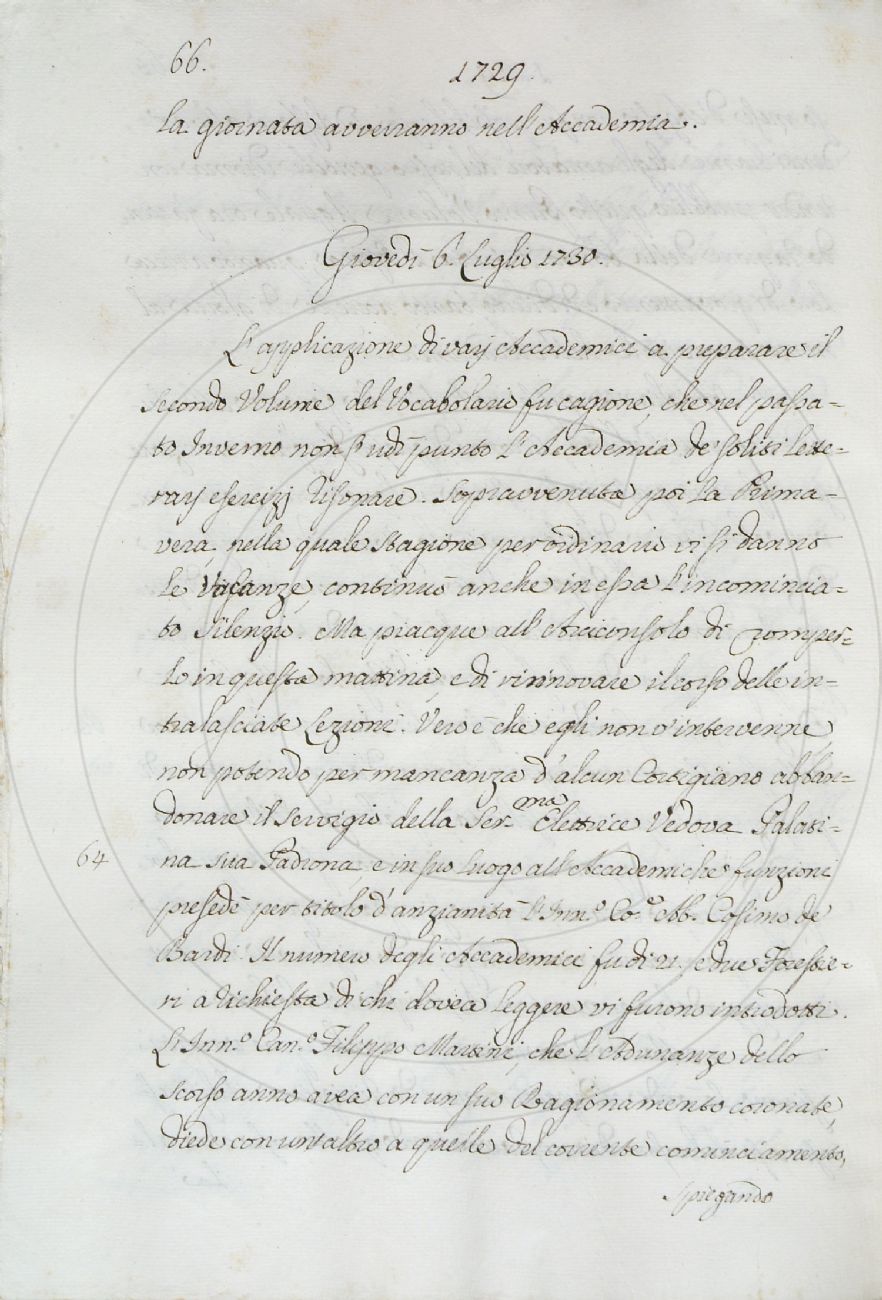 66.
1729.
la giornata avverranno nell'Accademia.
Giovedì 6. Luglio 1730.
L'applicazione di varj Accademici a preparare il
secondo Volume del Vocabolario fu cagione, che nel passa-
to Inverno non s'udì punto l'Accademia de' soliti lette-
rarj esercizj risonare. Sopravvenuta poi la Prima-
vera, nella quale stagione per ordinario vi si danno
le Vacanze, continuò anche in essa l'incomincia-
to silenzio. Ma piacque all'Arciconsolo di romper-
lo in questa mattina, e di rinnovare il corso delle in-
tralasciate Lezioni. Vero è che egli non v'intervenne,
non potendo per mancanza d'alcun Cortigiano abban-
donare il servigio della Ser.ma Elettrice Vedova Palati-
64
na sua Padrona, e in suo luogo all'Accademiche funzioni
presedè per titolo d'anzianità l'Inn.o Co.e Ab. Cosimo de
Bardi. Il numero degli Accademici fu di 21. e due Forestie-
ri a richiesta di chi dovea leggere vi furono introdotti.
L'Inn.o Can.o Filippo Martini, che l'Adunanze dello
scorso anno avea con un suo Ragionamento coronate,
diede con unt'altro a quelle del corrente cominciamento,
spiegando